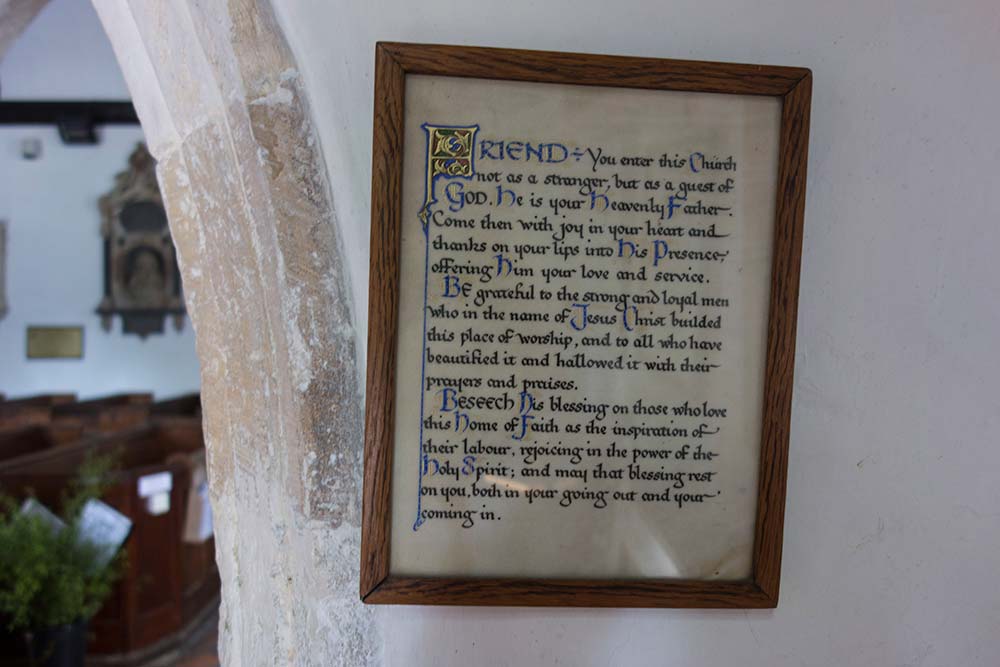 FRIEND ÷ You enter this Church
not as a stranger, but as a guest of
GOD. He is your Heavenly Father.
Come then with joy in your heart and
thanks on your lips into His Presence,
offering Him your love and service.
BE grateful to the strong and loyal men
who in the name of Jesus Christ builded
this place of worship, and to all who have
beautified it and hallowed it with their
prayers and praises.
BESEECH His blessing on those who love
this Home of Faith as the inspiration of
their labour, rejoicing in the power of the
Holy Spirit; and may that blessing rest
on you, both in your going out and your
coming in.